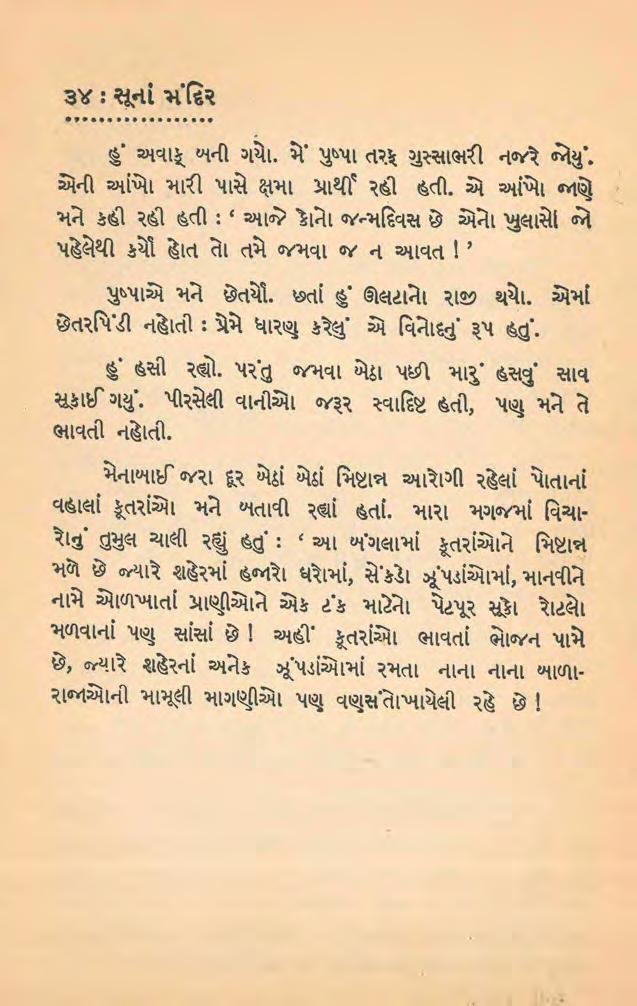 ૩૪ : સૂનાં મંદિર
હું અવાક્ બની ગયો. મેં પુષ્પા તરફ ગુસ્સાભરી નજરે જોયું.
એની આંખો મારી પાસે ક્ષમા પ્રાર્થી રહી હતી. એ આંખો જાણે
મને કહી રહી હતી : ‘ આજે કોનો જન્મદિવસ છે એનો ખુલાસો જો
પહેલેથી કર્યો હોત તો તમે જમવા જ ન આવત ! ’
પુષ્પાએ મને છેતર્યો. છતાં હું ઊલટાનો રાજી થયો. એમાં
છેતરપિંડી નહોતી : પ્રેમે ધારણ કરેલું એ વિનોદનું રૂપ હતું.
હું હસી રહ્યો. પરંતુ જમવા બેઠા પછી મારું હસવું સાવ
સૂકાઈ ગયું. પીરસેલી વાનીઓ જરૂર સ્વાદિષ્ટ હતી, પણ મને તે
ભાવતી નહોતી.
મેનાબાઈ જરા દૂર બેઠાં બેઠાં મિષ્ટાન્ન આરોગી રહેલાં પોતાનાં
વહાલાં કૂતરાંઓ મને બતાવી રહ્યાં હતાં. મારા મગજમાં વિચા-
રોનું તુમુલ ચાલી રહ્યું હતું : ‘ આ બંગલામાં કૂતરાંઓને મિષ્ટાન્ન
મળે છે જ્યારે શહેરમાં હજારો ઘરોમાં, સેંકડો ઝૂંપડાંઓમાં, માનવીને
નામે ઓળખાતાં પ્રાણીઓને એક ટંક માટેનો પેટપૂર સૂકો રોટલો
મળવાનાં પણ સાંસાં છે ! અહીં કૂતરાંઓ ભાવતાં ભોજન પામે
છે, જ્યારે શહેરનાં અનેક ઝૂંપડાંઓમાં રમતા નાના નાના બાળા-
રાજાઓની મામૂલી માગણીઓ પણ વણસંતોષાયેલી રહે છે !